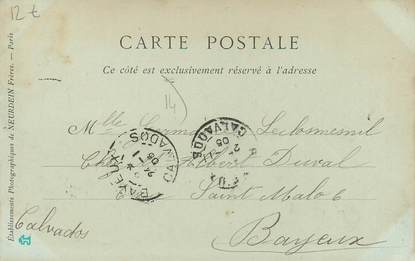 12 €
CARTE POSTALE
Ce côté est exclusivement réservé à l'adresse
14
Mlle Germaine Lecbosmesnil
Chez Albert Duval
Saint Malo 6
Bayeux
Calvados
BAYEUX CALVADOS
CALVADOS
Etablissements Photographiques de NEURDEIN Frères. — Paris